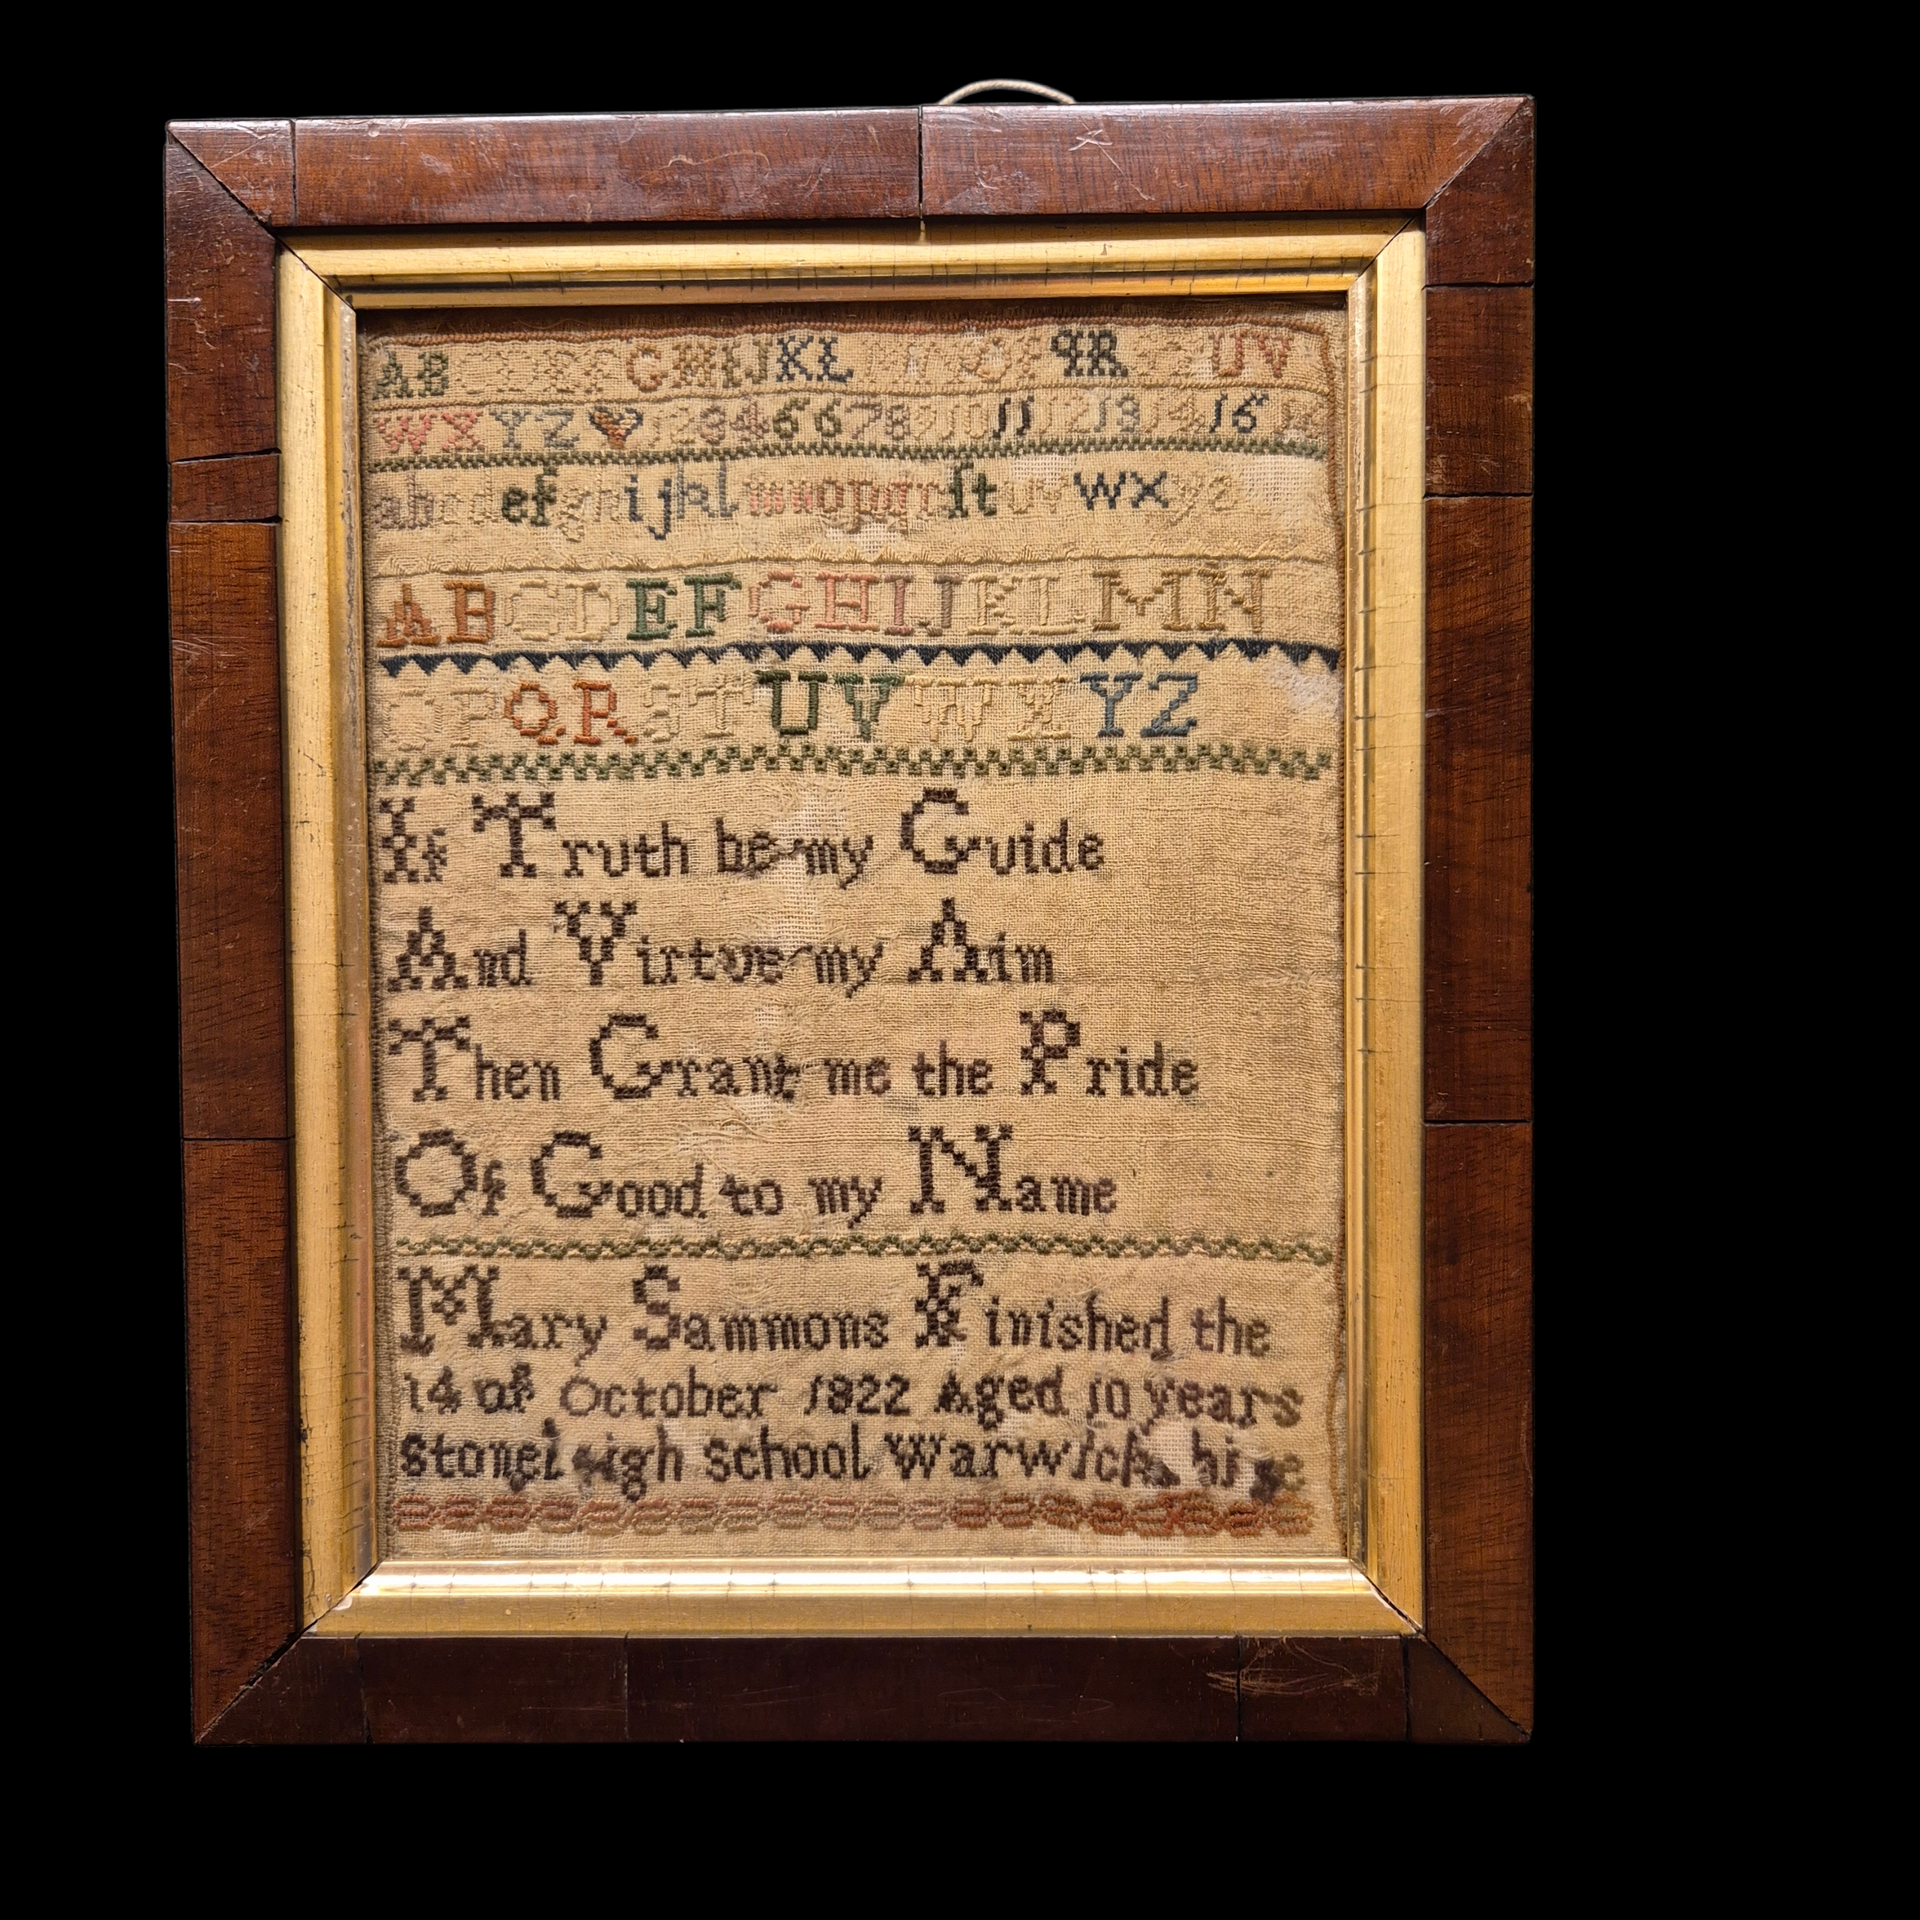 ABCDEFGHIJKLMNOPqRSTUV
WXYZ 12346678910 11 12 13 14 15
abcdefghijklmnopqrſtuvwxyz
ABCDEFGHIJKLMN
OPQRSTUVWXYZ
If Truth be my Guide
And Virtue my Aim
Then Grant me the Pride
Of Good to my Name
Mary Sammons Finished the
14 of October 1822 Aged 10 years
stoneleigh school Warwickshire